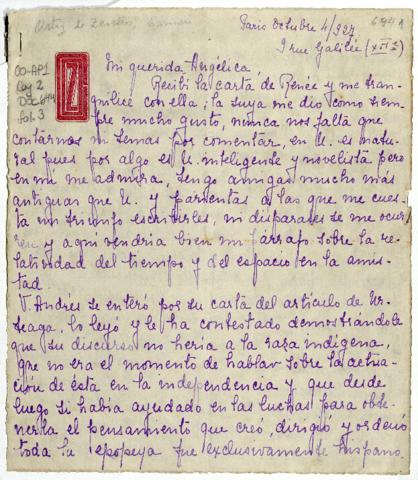 Ortiz de Zevallos, Carmen
694 A
Paris Octubre 4/927
1 rue Galilée (XVI e)
OO-AP1
Caj 2
Doc 644
fol. 3
Mi querida Angélica,
Recibí la carta de Renée y me tran-
quilicé con ella; la suya me dió como siem-
pre mucho gusto, nunca nos falta que
contarnos ni temas por comentar, en U. es natu-
ral pues por algo es U. inteligente y novelista pero
en mi me admira, tengo amigas mucho más
antiguas que U. y parientas á las que me cues-
ta un triunfo escribirles, ni disparates se me ocur-
ren y aqui vendria bien un párrafo sobre la re-
latividad del tiempo y del espacio en la amis-
tad.
V. Andres se enteró por su carta del artículo de Ur-
teaga, lo leyó y le ha contestado demostrándole
que su discurso no hería a la raza indígena,
que no era el momento de hablar sobre la actua-
ción de ésta en la independencia y que desde
luego si había ayudado en las luchas para obte-
nerla el pensamiento que creó, dirigió y ordenó
toda la epopeya fue exclusivamente hispano